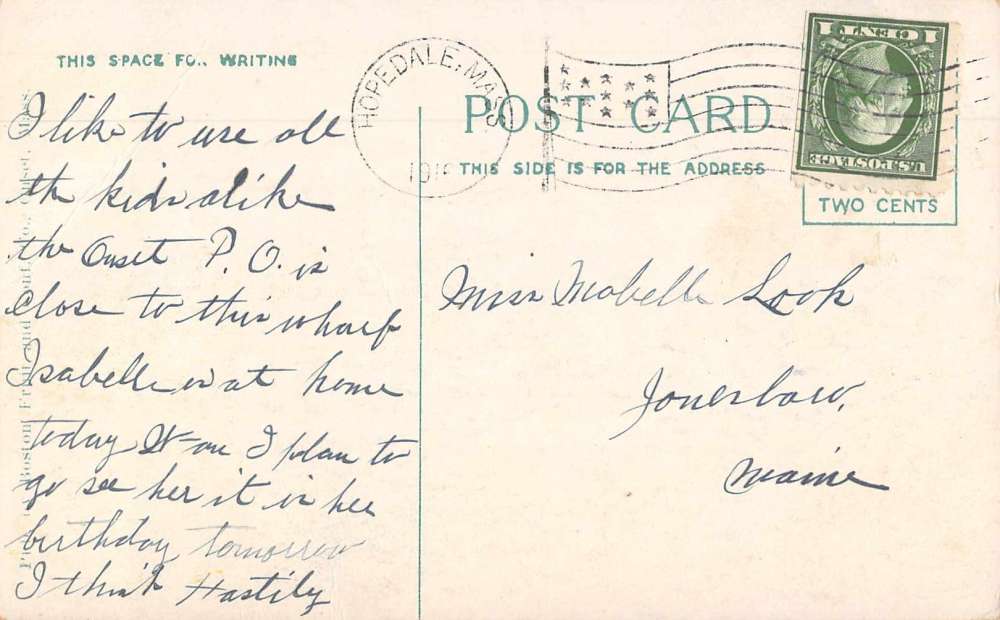 THIS SPACE FO.. WRITING
I like to use all
the kids alike
the Onset P. O. is
close to this wharf
Isabelle is at home
today I plan to
go see her it is her
birthday tomorrow
I think Hastily
HOPEDALE, MASS
191
POST CARD
THIS SIDE IS FOR THE ADDRESS
1 CENT 1
U.S. POSTAGE
TWO CENTS
Miss Mabelle Look
Jonesboro,
Maine
Boston Fruit and Co., Onset, Mass.